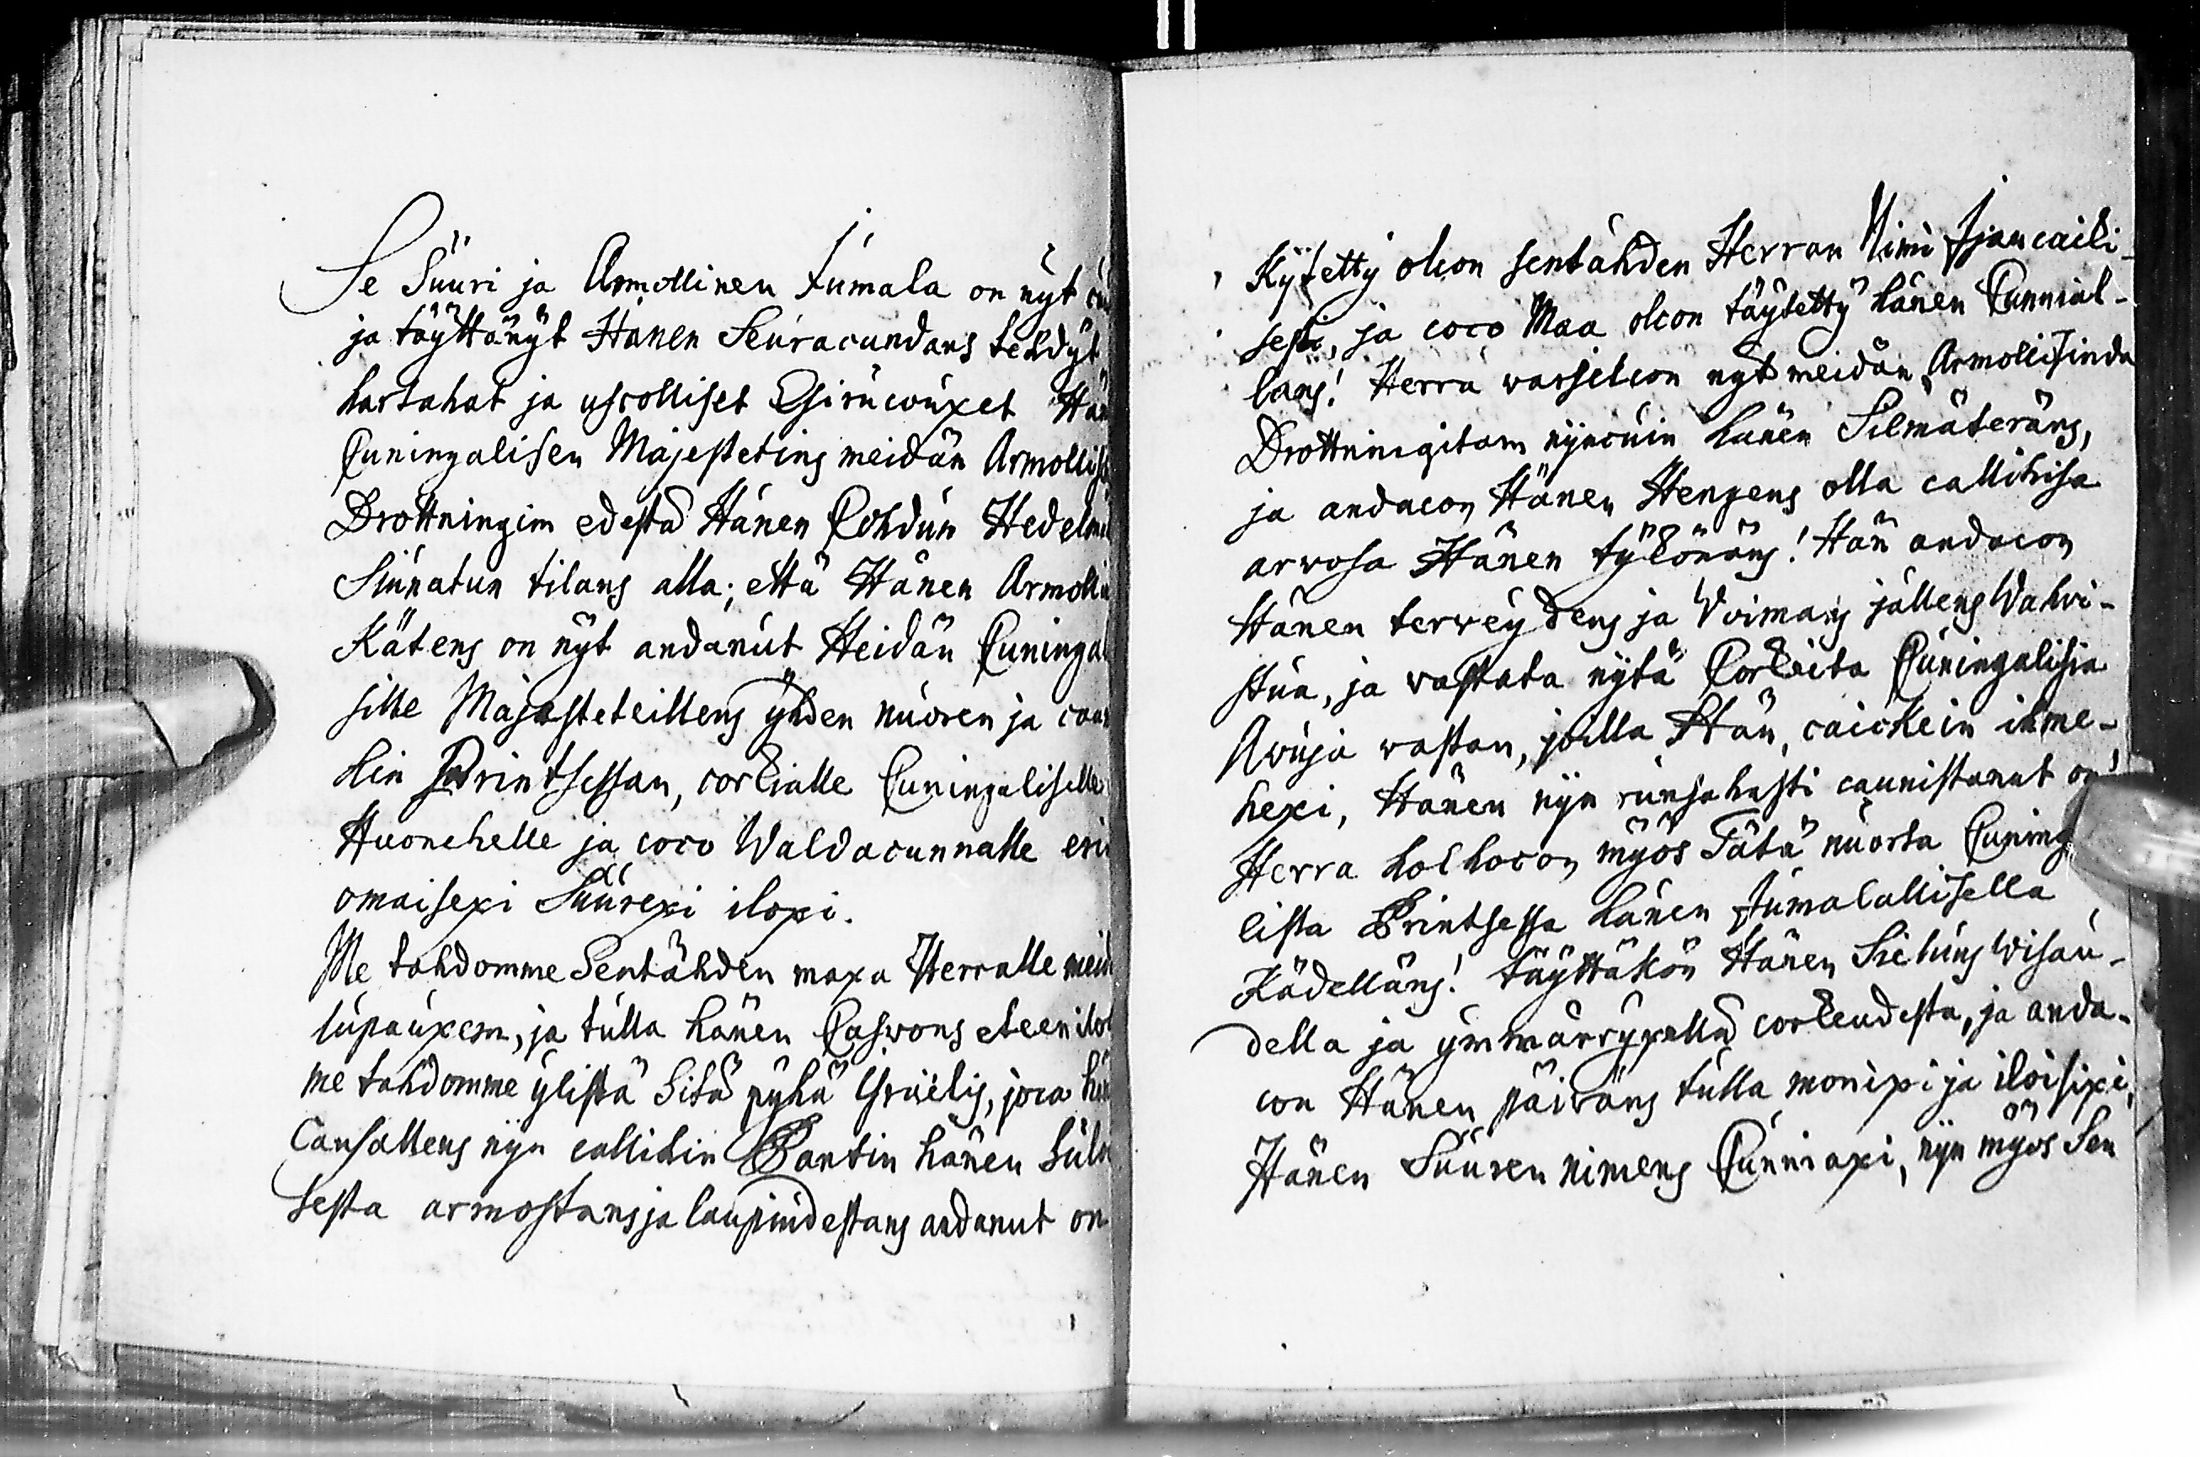 Se Suuri ja Armollinen Jumala on nyt
ja täyttänyt Hänen Seuracundans tehdyt
hartahat ja uscolliset Esirucouxet
Cuningalisen Majestetins meidän
Drottningim edestä Hänen Cohdun
Siunatun tilans alla; että Hänen
Kätens on nyt andanut Heidän
sille Majesteteillens yhden nuoren ja
hin Printsessan, corkialle Cuningaliselle
Huonehelle ja coco Waldacunnalle
omaisexi Suurexi iloxi.
Me tahdomme Sentähden maxa Herralle
lupauxem, ja tulla hänen Caswons eteen
me tahdomme ylistä Sitä pyhä Israelis, joca
Cansallens nijn callihin Pantin hänen
sesta armostans ja laupiudestans andanut on
Kijtetty olcon sentähden Herran Nimi Ijancaicki-
sesti, ja coco Maa olcon täytetty hänen Cunnial-
lans! Herra warjelcon nyt meidän Armollisinda
Drottningitam nijncuin hänen Silmäteräns,
ja andacon Hänen Hengens olla callihisa
arwosa Hänen tykönäns! Hän andacon
Hänen terweydens ja Woimans jällens Wahwi-
stua, ja wastata nijtä Corkeita Cuningalisia
Awuja wastan, joilla Hän, caickein ihme-
hexi, Hänen nijn runsahasti caunistanut on!
Herra holhocon myös Tätä nuorta
lista Printsessa hänen Jumalallisella
Kädelläns! täyttäkön Hänen Sieluns Wisau-
della ja ymmärryxellä corkeudesta, ja anda-
con Hänen päiwäns tulla monixi ja iloisixi,
Hänen Suuren nimens Cunniaxi, nijn myös Sen